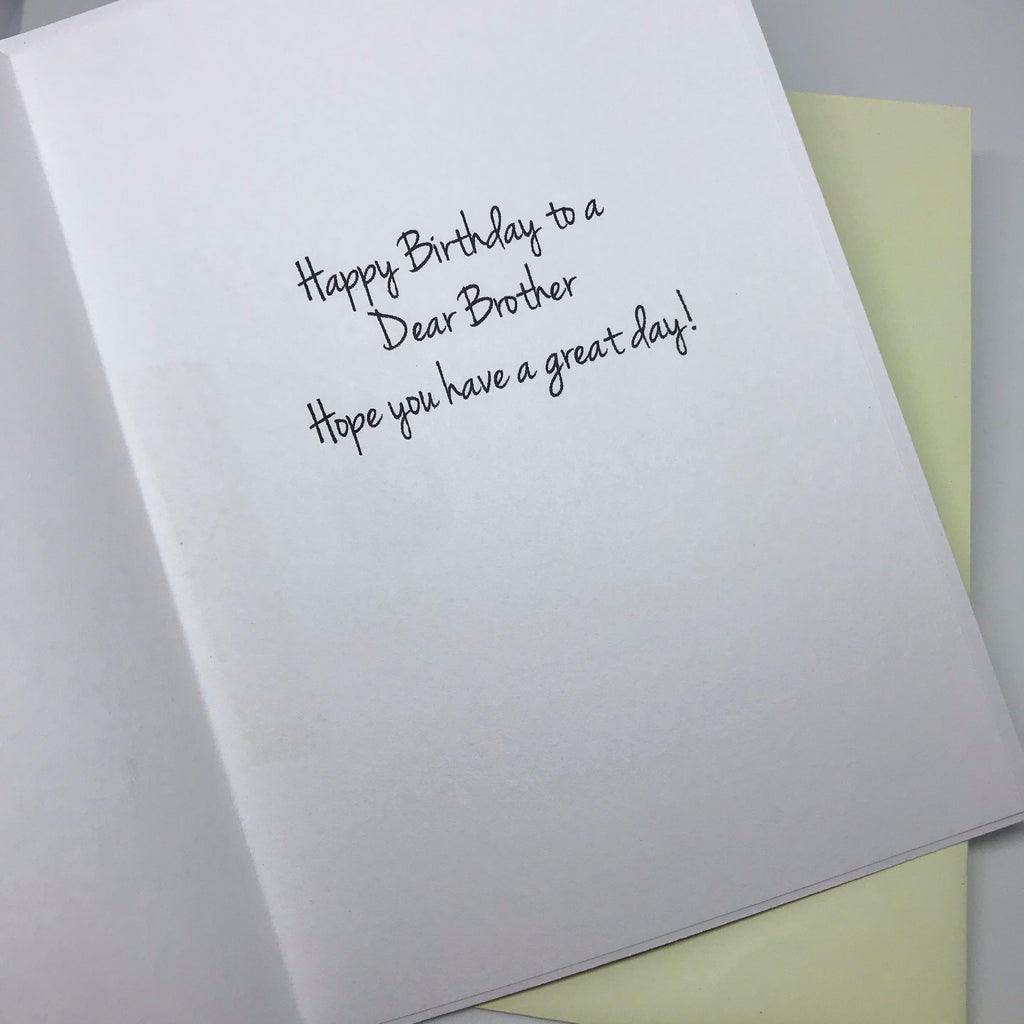 Happy Birthday to a
Dear Brother
Hope you have a great day!